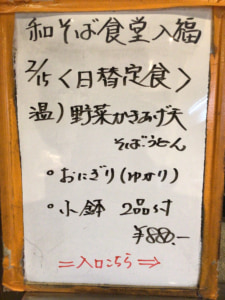 和そば食堂入福
2/15〈日替定食〉
温)野菜かきあげ天
そばうどん
○おにぎり(ゆかり)
○小鉢 2品付
¥880.-
=入口こちら⇒